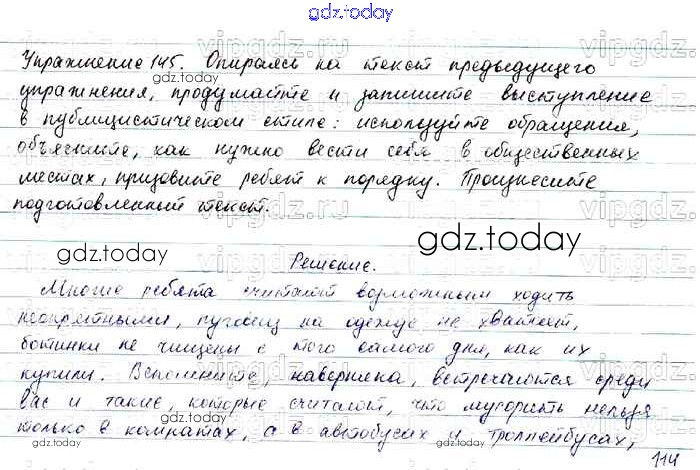 gdz.today
Упражнение 145. Опираясь на текст предыдущего
gdz.today
упражнения, продумайте и запишите выступление
в публицистическом стиле: используйте обращения,
объясните, как нужно вести себя в общественных
местах, призовите ребят к порядку. Произнесите
подготовленный текст.
vipgdz.ru
gdz.today
gdz.today
Решение.
Многие ребята считают возможным ходить
неопрятными, пуговиц на одежде не хватает,
gdz.today
ботинки не чищены с того самого дня, как их
купили. Вспомните, наверняка, встречаются среди
вас и такие, которые считают, что мусорить нельзя
только в комнатах, а в автобусах и троллейбусах,
gdz.today
gdz.today
114